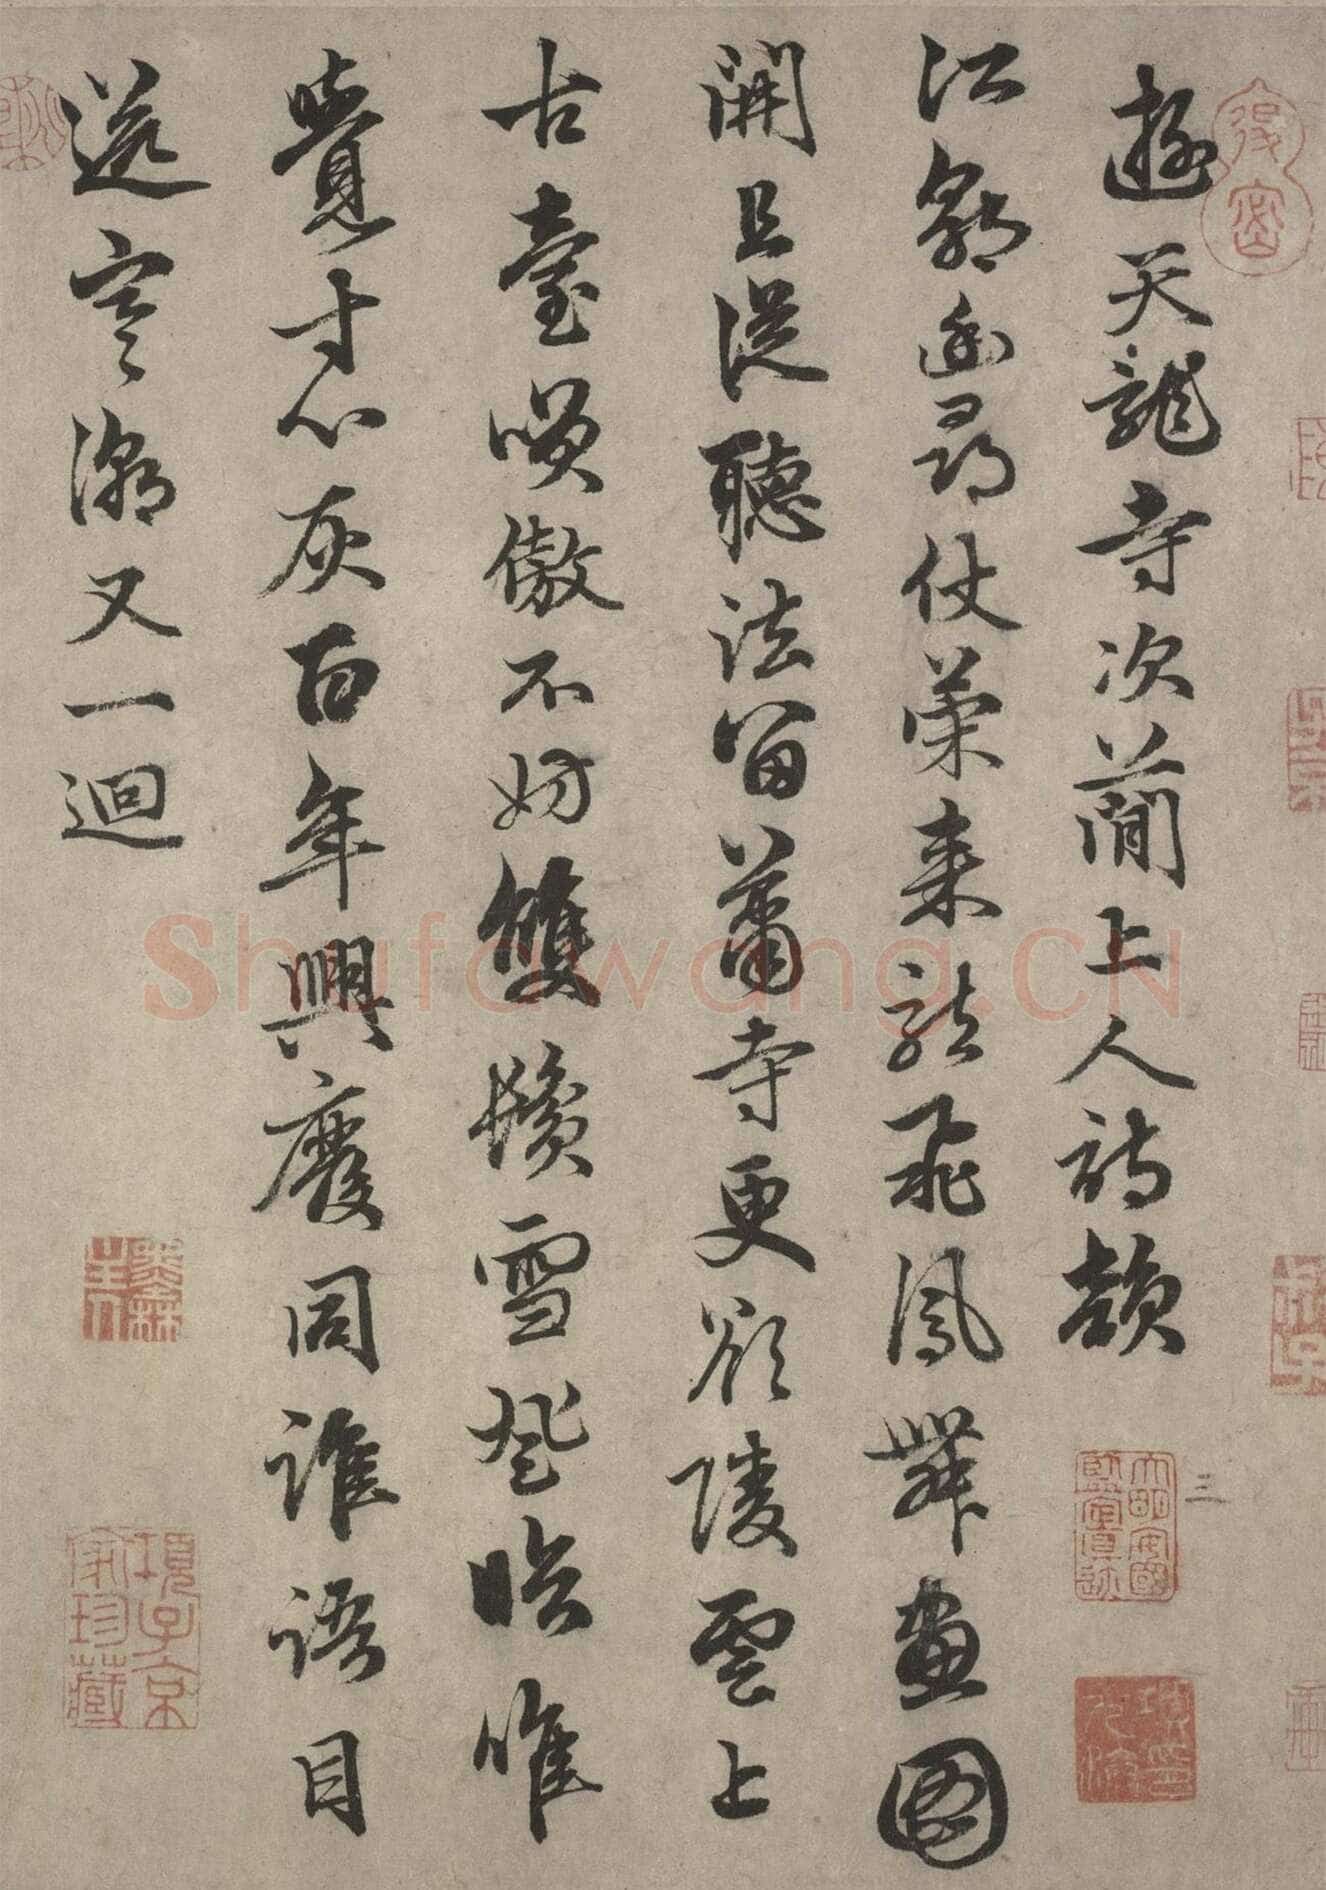 遊天龍寺次蘭上人詩韻
江郭幽尋仗策来龍飛鳳舞畫圖
開且從聽法留蕭寺更欲陵雲上
古臺嘆傲不妨雙鬢雪登臨唯
覺寸心灰百年興廢同誰語目
送寒潮又一迴
三
項子京
家珍藏
Shufawang.CN